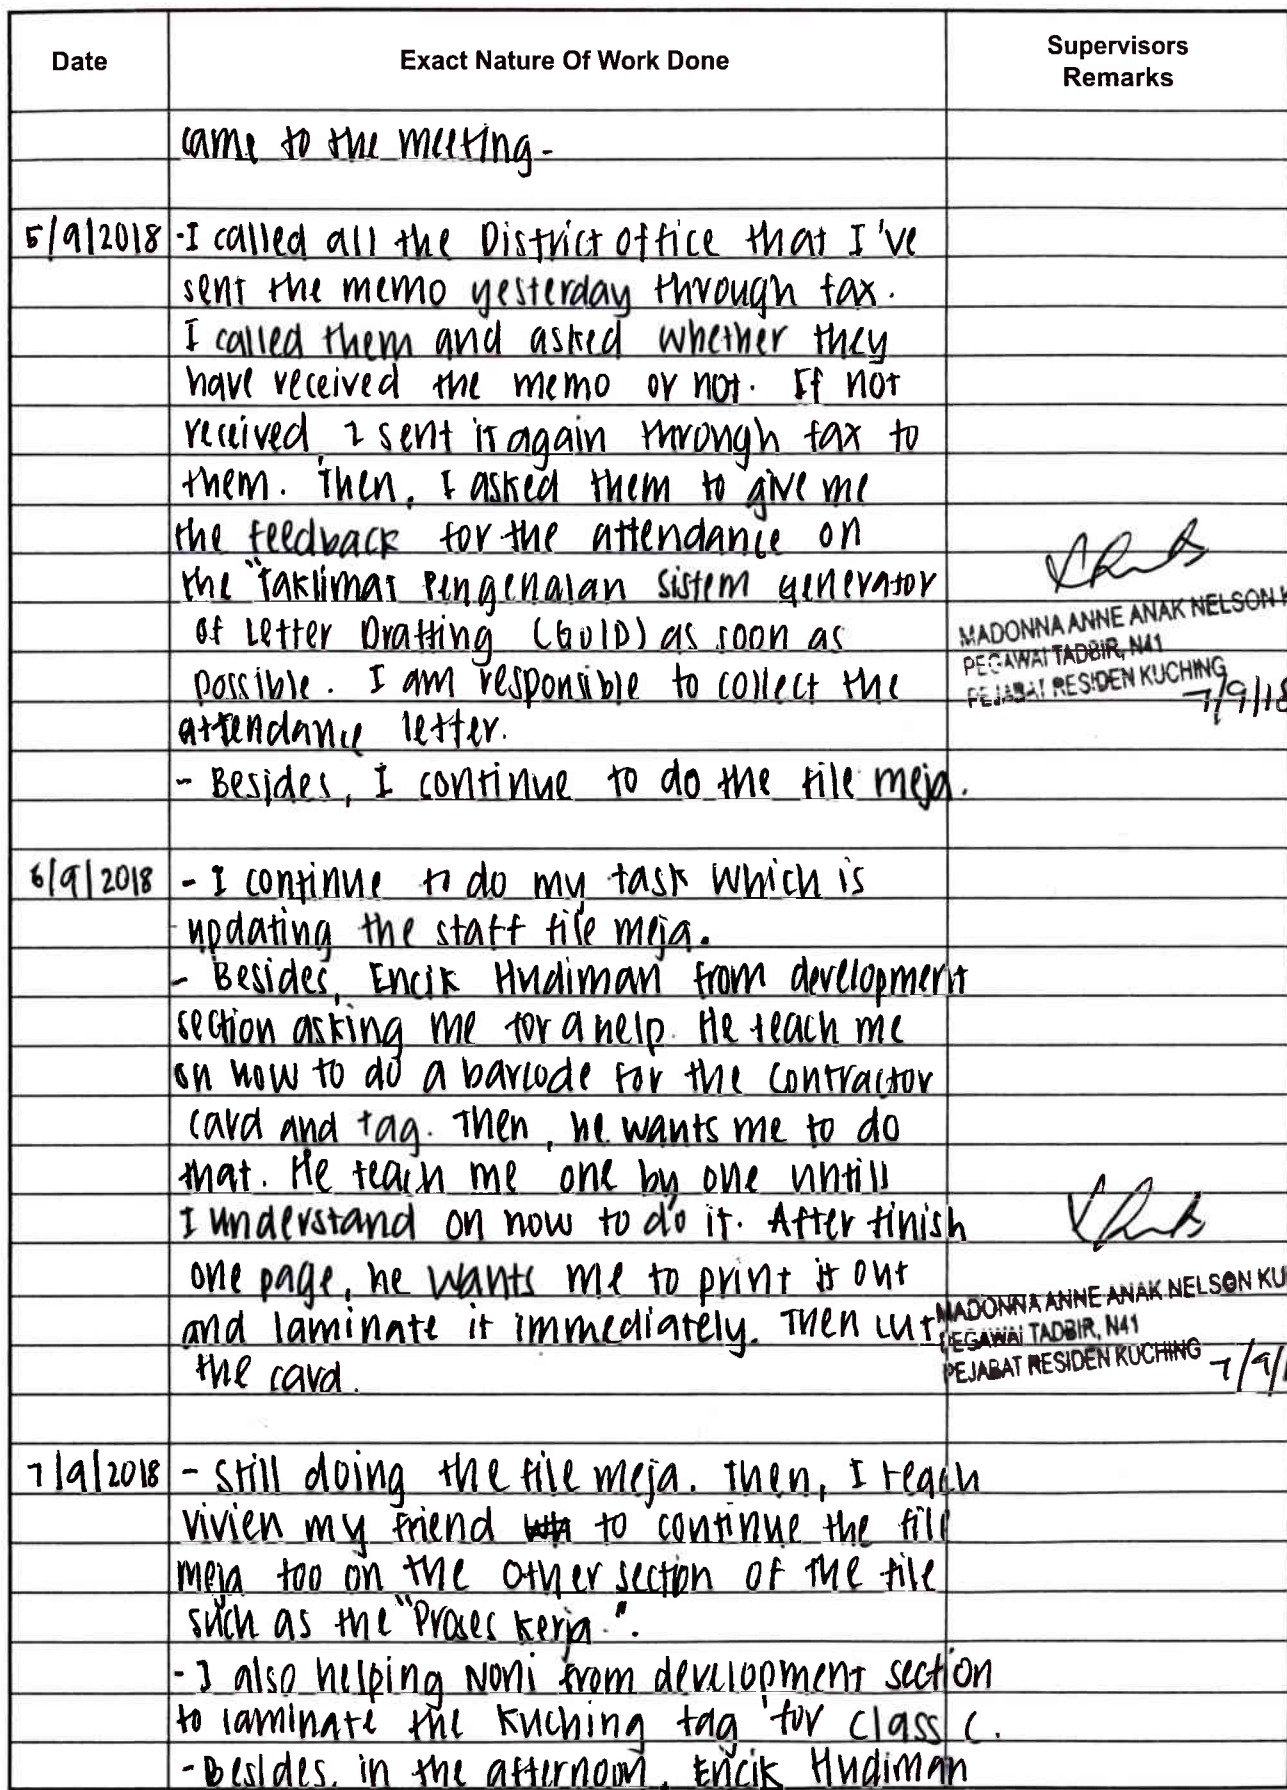 Date
Exact Nature Of Work Done
Supervisors
Remarks
came to the meeting-
5/9/2018
-I called all the District office that I've
sent the memo yesterday through fax.
I called them and asked whether they
have received the memo or not. If not
received, I sent it again through fax to
them. Then, I asked them to give me
the feedback for the attendance on
the "Taklimat Pengenalan Sistem Generator
of Letter Drafting (GOLD) as soon as
possible. I am responsible to collect the
attendance letter.
- Besides, I continue to do the file meja.
MADONNA ANNE ANAK NELSON
PEGAWAI TADBIR, N41
PEJABAT RESIDEN KUCHING
7/9/18
6/9/2018
- I continue to do my task which is
updating the staff file meja.
- Besides, Encik Hudiman from development
section asking me for a help. He teach me
on how to do a barcode for the contractor
card and tag. Then, he wants me to do
that. He teach me one by one untill
I understand on how to do it. After finish
one page, he wants me to print it out
and laminate it immediately. Then cut
the card.
MADONNA ANNE ANAK NELSON KU
PEGAWAI TADBIR, N41
PEJABAT RESIDEN KUCHING
7/9/1
7/9/2018
- Still doing the file meja. Then, I teach
vivien my friend to continue the file
meja too on the other section of the file
such as the "Proses Kerja.".
- I also helping Noni from development section
to laminate the Kuching tag for class C.
- Besides, in the afternoon, Encik Hudiman